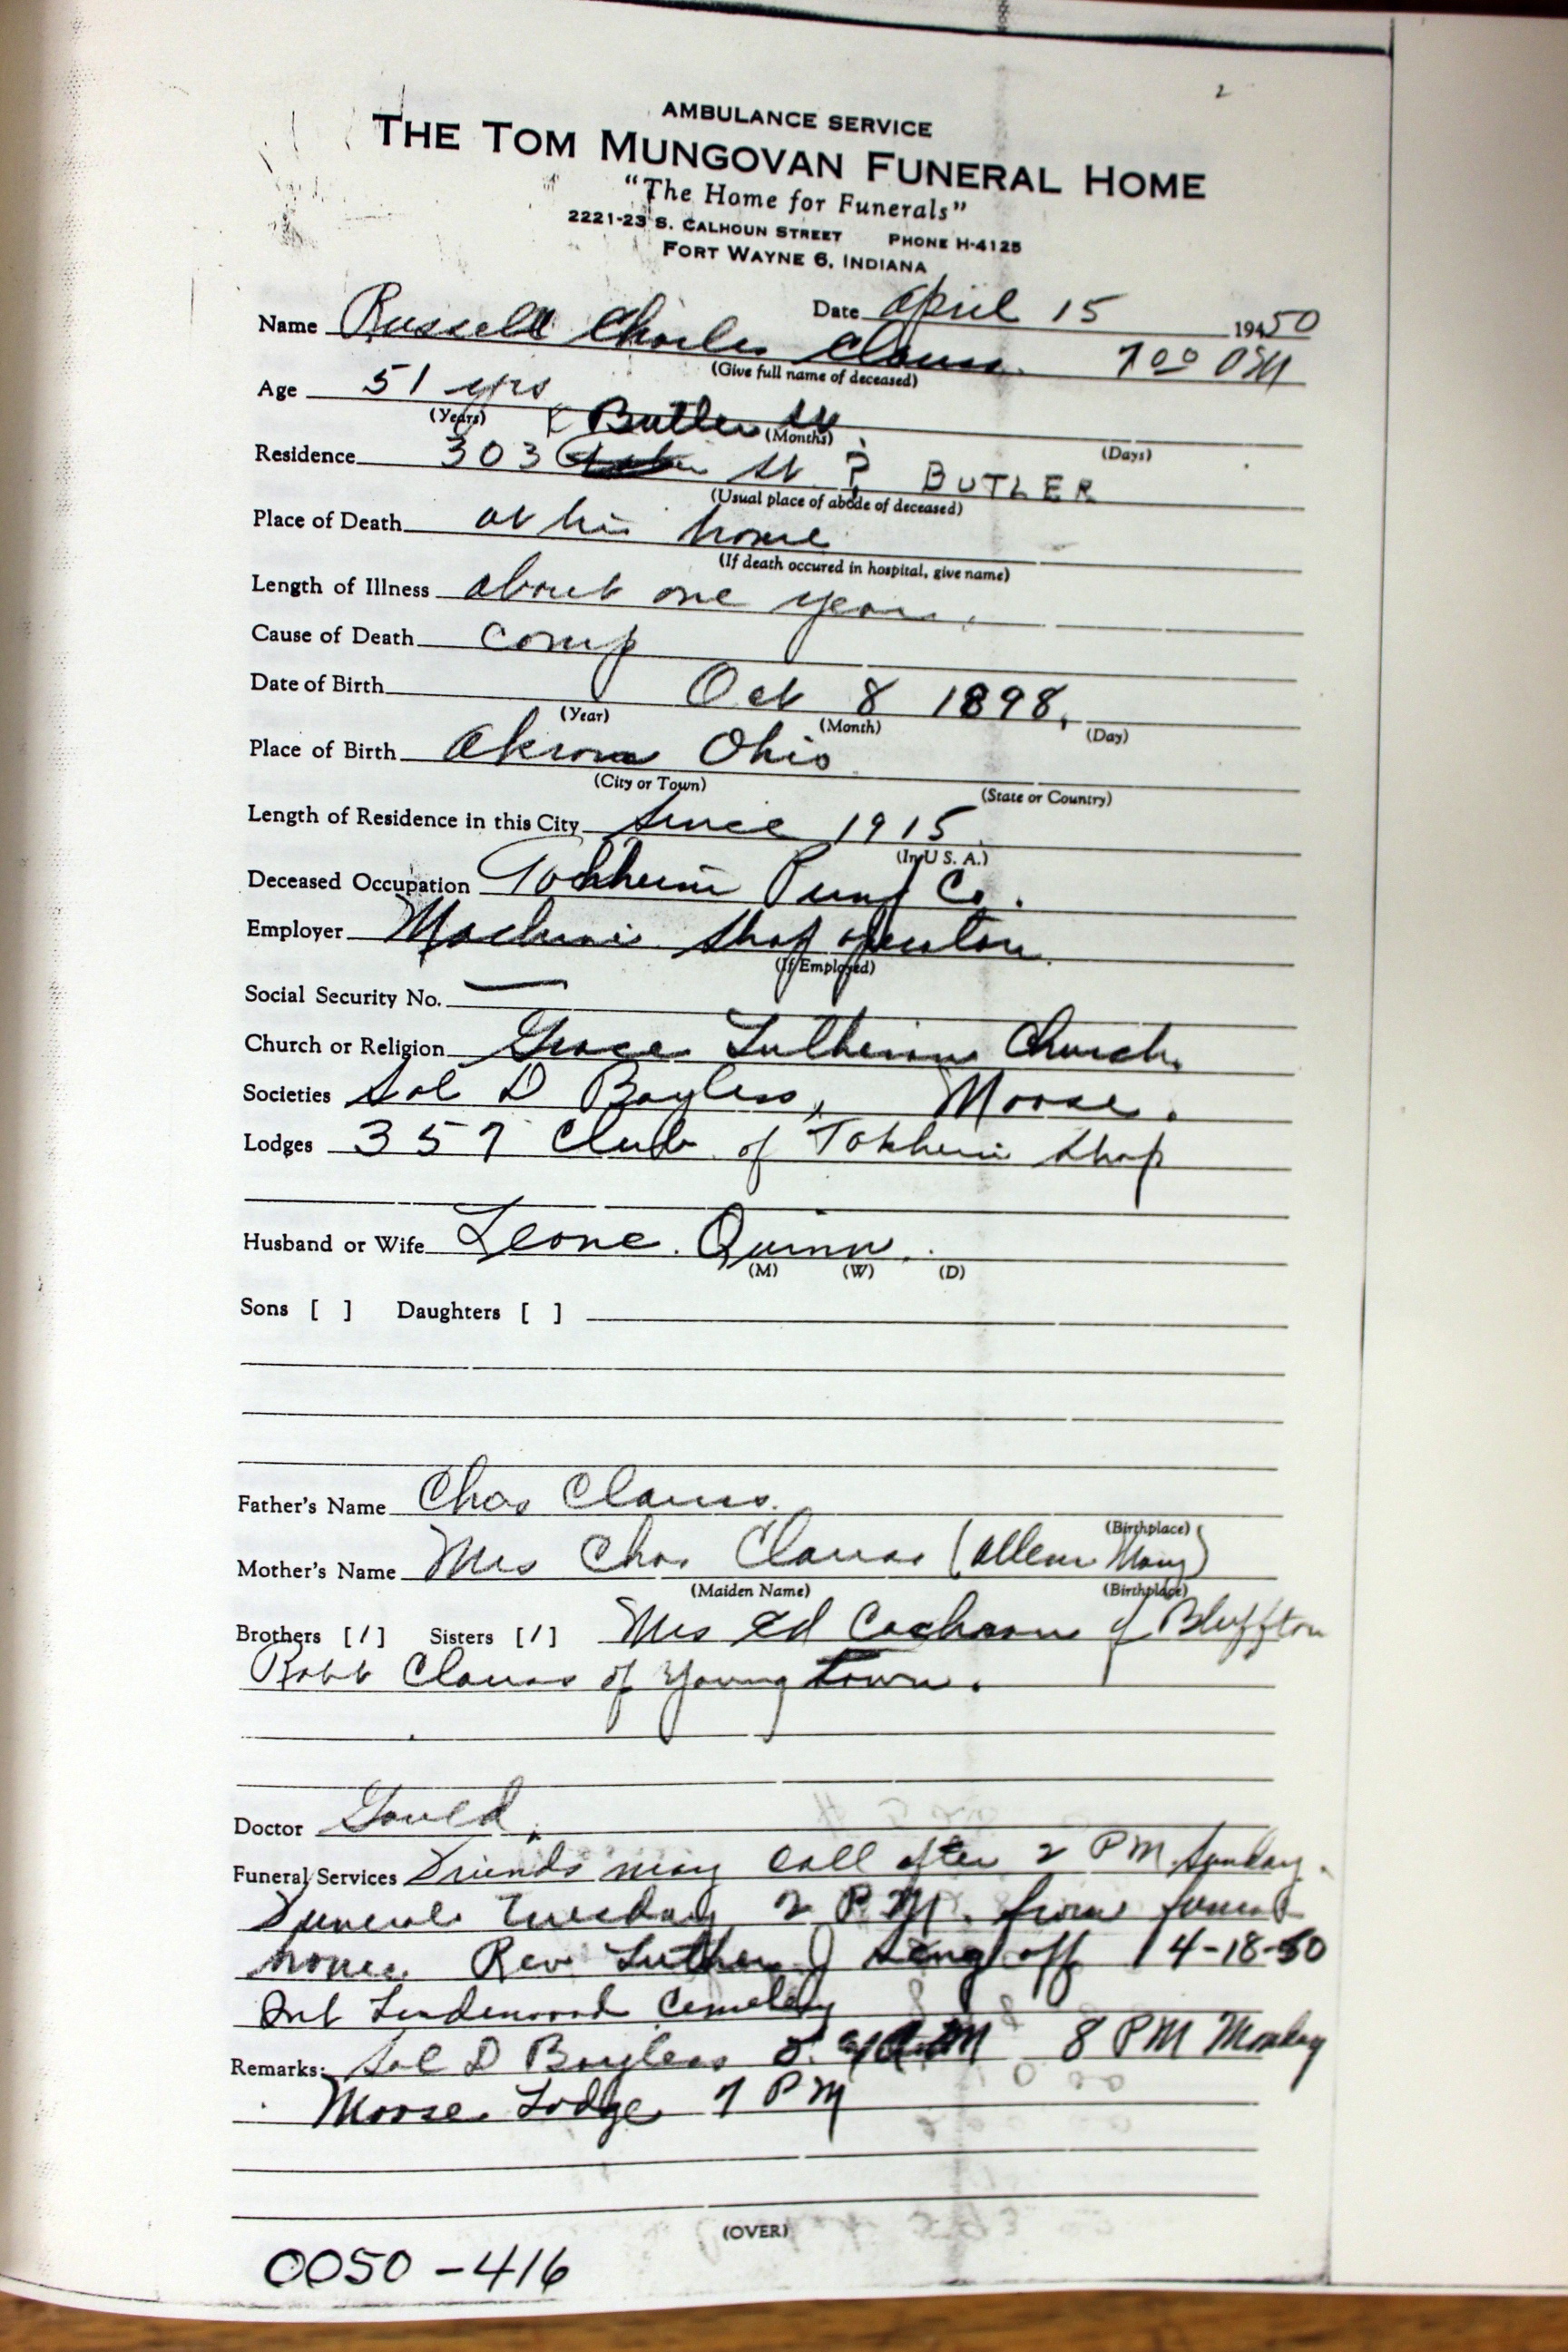 2
AMBULANCE SERVICE
THE TOM MUNGOVAN FUNERAL HOME
"The Home for Funerals"
2221-23 S. CALHOUN STREET PHONE H-4125
FORT WAYNE 6, INDIANA
Date April 15 19450
Name Russell Charles Clauss. 7 00 PM
(Give full name of deceased)
Age 51 yrs
(Years) (Months) (Days)
Butler St
Residence 303 St. ? BUTLER
(Usual place of abode of deceased)
Place of Death at his home
(If death occured in hospital, give name)
Length of Illness about one year.
Cause of Death comp
Date of Birth Oct 8 1898,
(Year) (Month) (Day)
Place of Birth Akron Ohio
(City or Town) (State or Country)
Length of Residence in this City Since 1915
(In U S. A.)
Deceased Occupation Tokheim Pump Co.
Employer Machine Shop operator.
(If Employed)
Social Security No. —
Church or Religion Grace Lutheran Church.
Societies Sol D Bayless, Moose.
Lodges 357 Club of Tokheim Shop
Husband or Wife Leone Quinn.
(M) (W) (D)
Sons [ ] Daughters [ ]
Father's Name Chas Clauss.
(Birthplace)
Mother's Name Mrs Chas Clauss (Allen Mary)
(Maiden Name) (Birthplace)
Brothers [1] Sisters [1] Mrs Ed Cochran of Bluffton
Robt Clauss of Youngtown.
Doctor Gould.
Funeral Services Friends may call after 2 PM Sunday.
Funeral Tuesday 2 P.M. from funeral
home. Rev Luther off 4-18-50
Int Lindenwood Cemetery
Remarks: Sol D Bayless 8 PM Monday
Moose Lodge 7 PM
(OVER)
0050-416